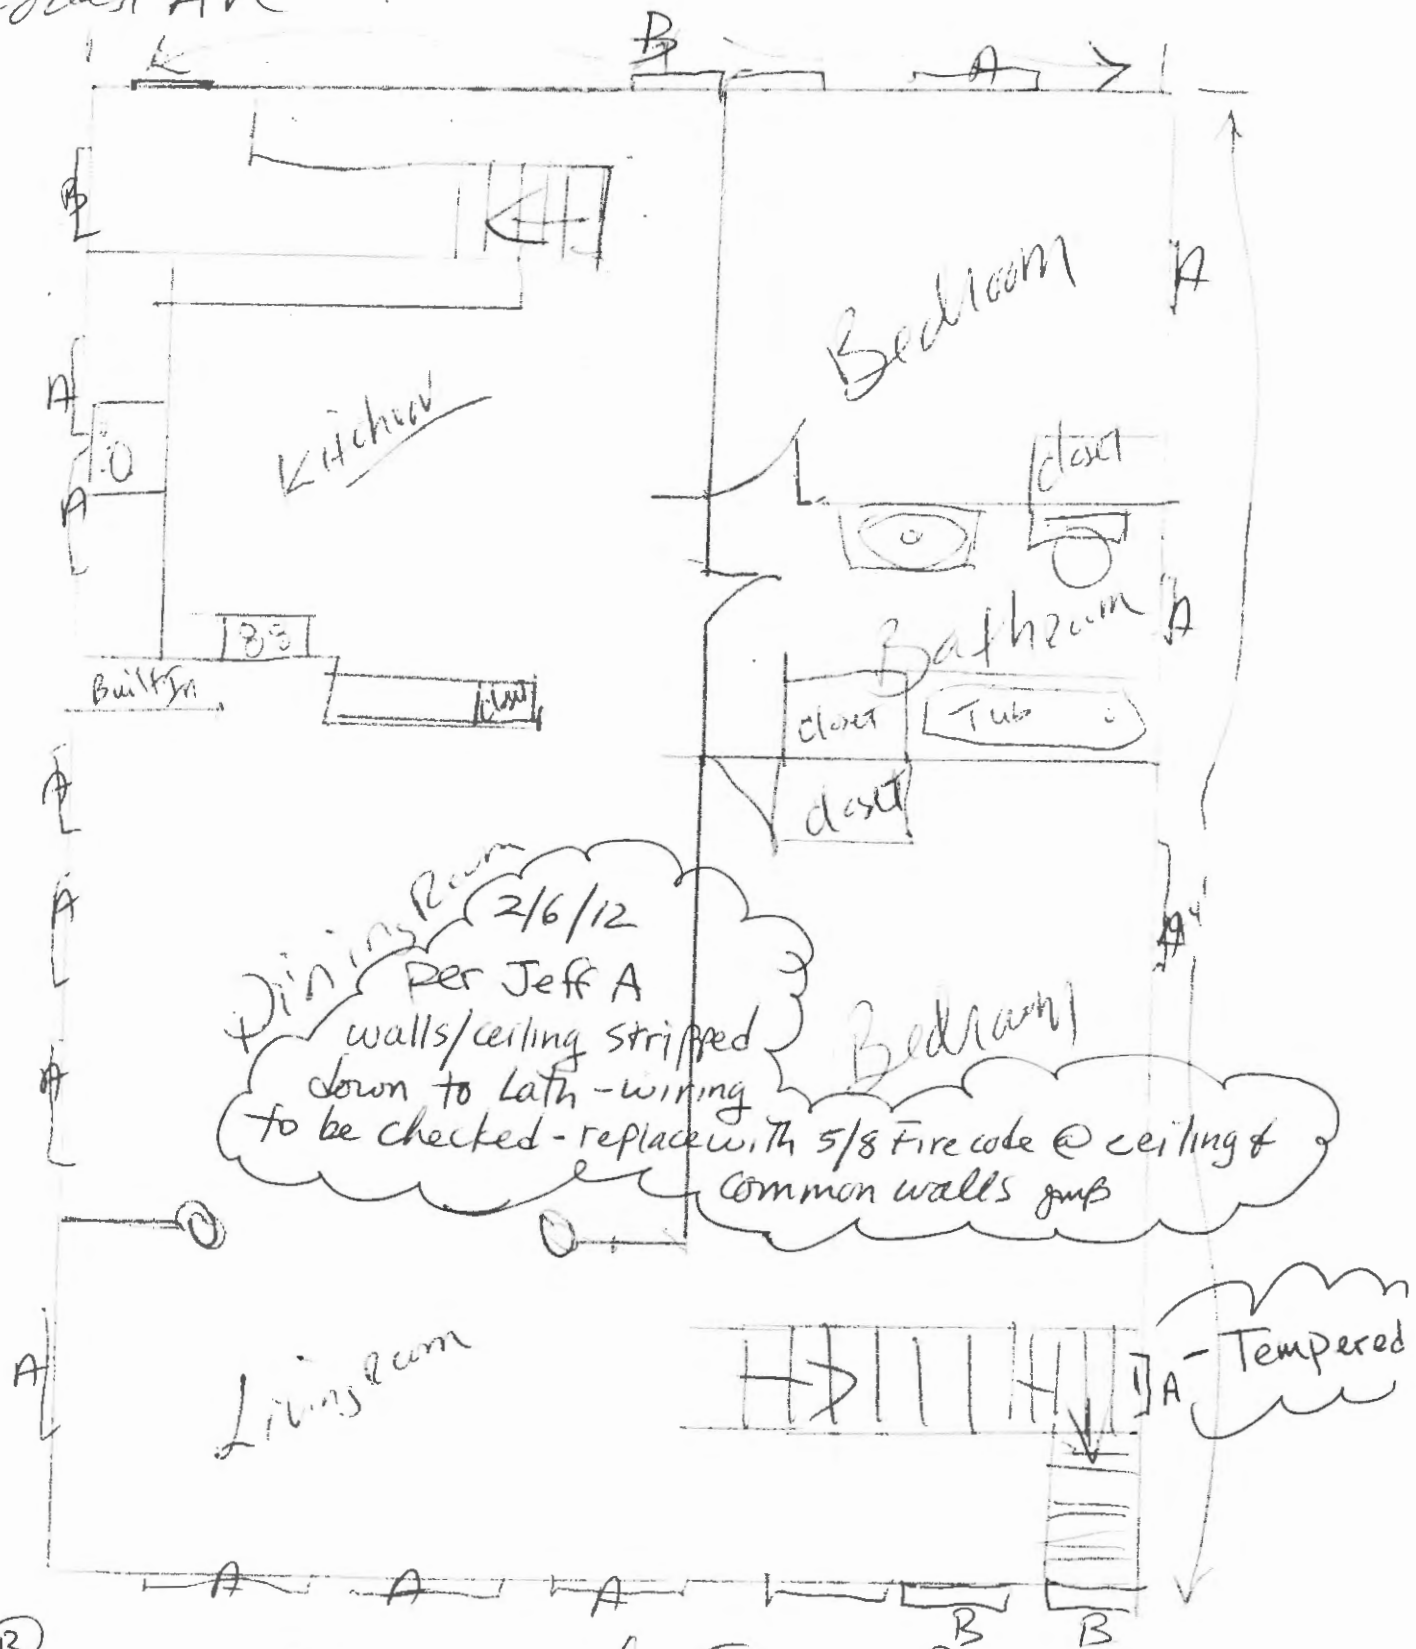 B
A
B
A
Bedroom
A
Kitchen
closet
A
Bathroom
A
Built In
closet
closet
Tub
closet
A
A
A
Dining Room
2/6/12
per Jeff A
walls/ceiling stripped
down to Lath - wiring
to be checked - replace with 5/8 Firecode @ ceiling &
common walls
Bedroom
A
A
Living Room
A - Tempered
A A A
B B